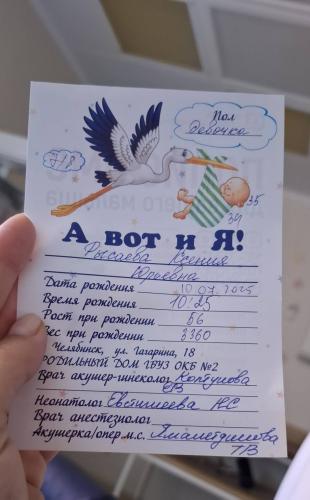 Пол
девочка
7/8
35
34
А вот и Я!
Рысаева Ксения
Юрьевна
Дата рождения 10.07.2025
Время рождения 10:25
Рост при рождении 56
Вес при рождении 3360
Челябинск, ул. Гагарина, 18
РОДИЛЬНЫЙ ДОМ ГБУЗ ОКБ №2
Врач акушер-гинеколог
Неонатолог Евстигнеева НС
Врач анестезиолог
Акушерка/опер.м.с.
ТВ